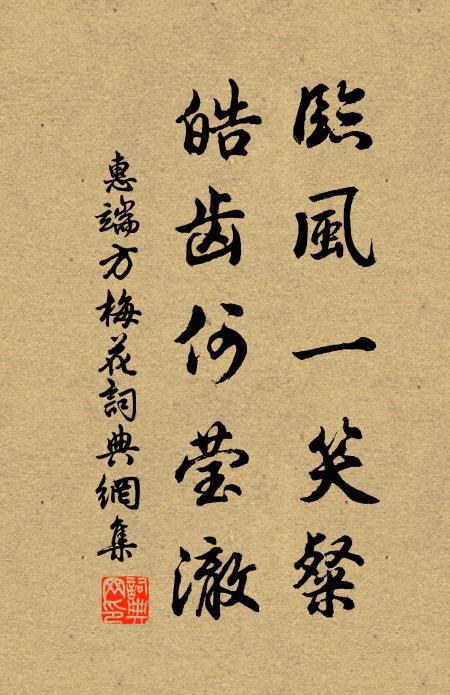 臨風一笑粲
皓齿何莹澈
惠端方梅花詞典網集
詞典网印